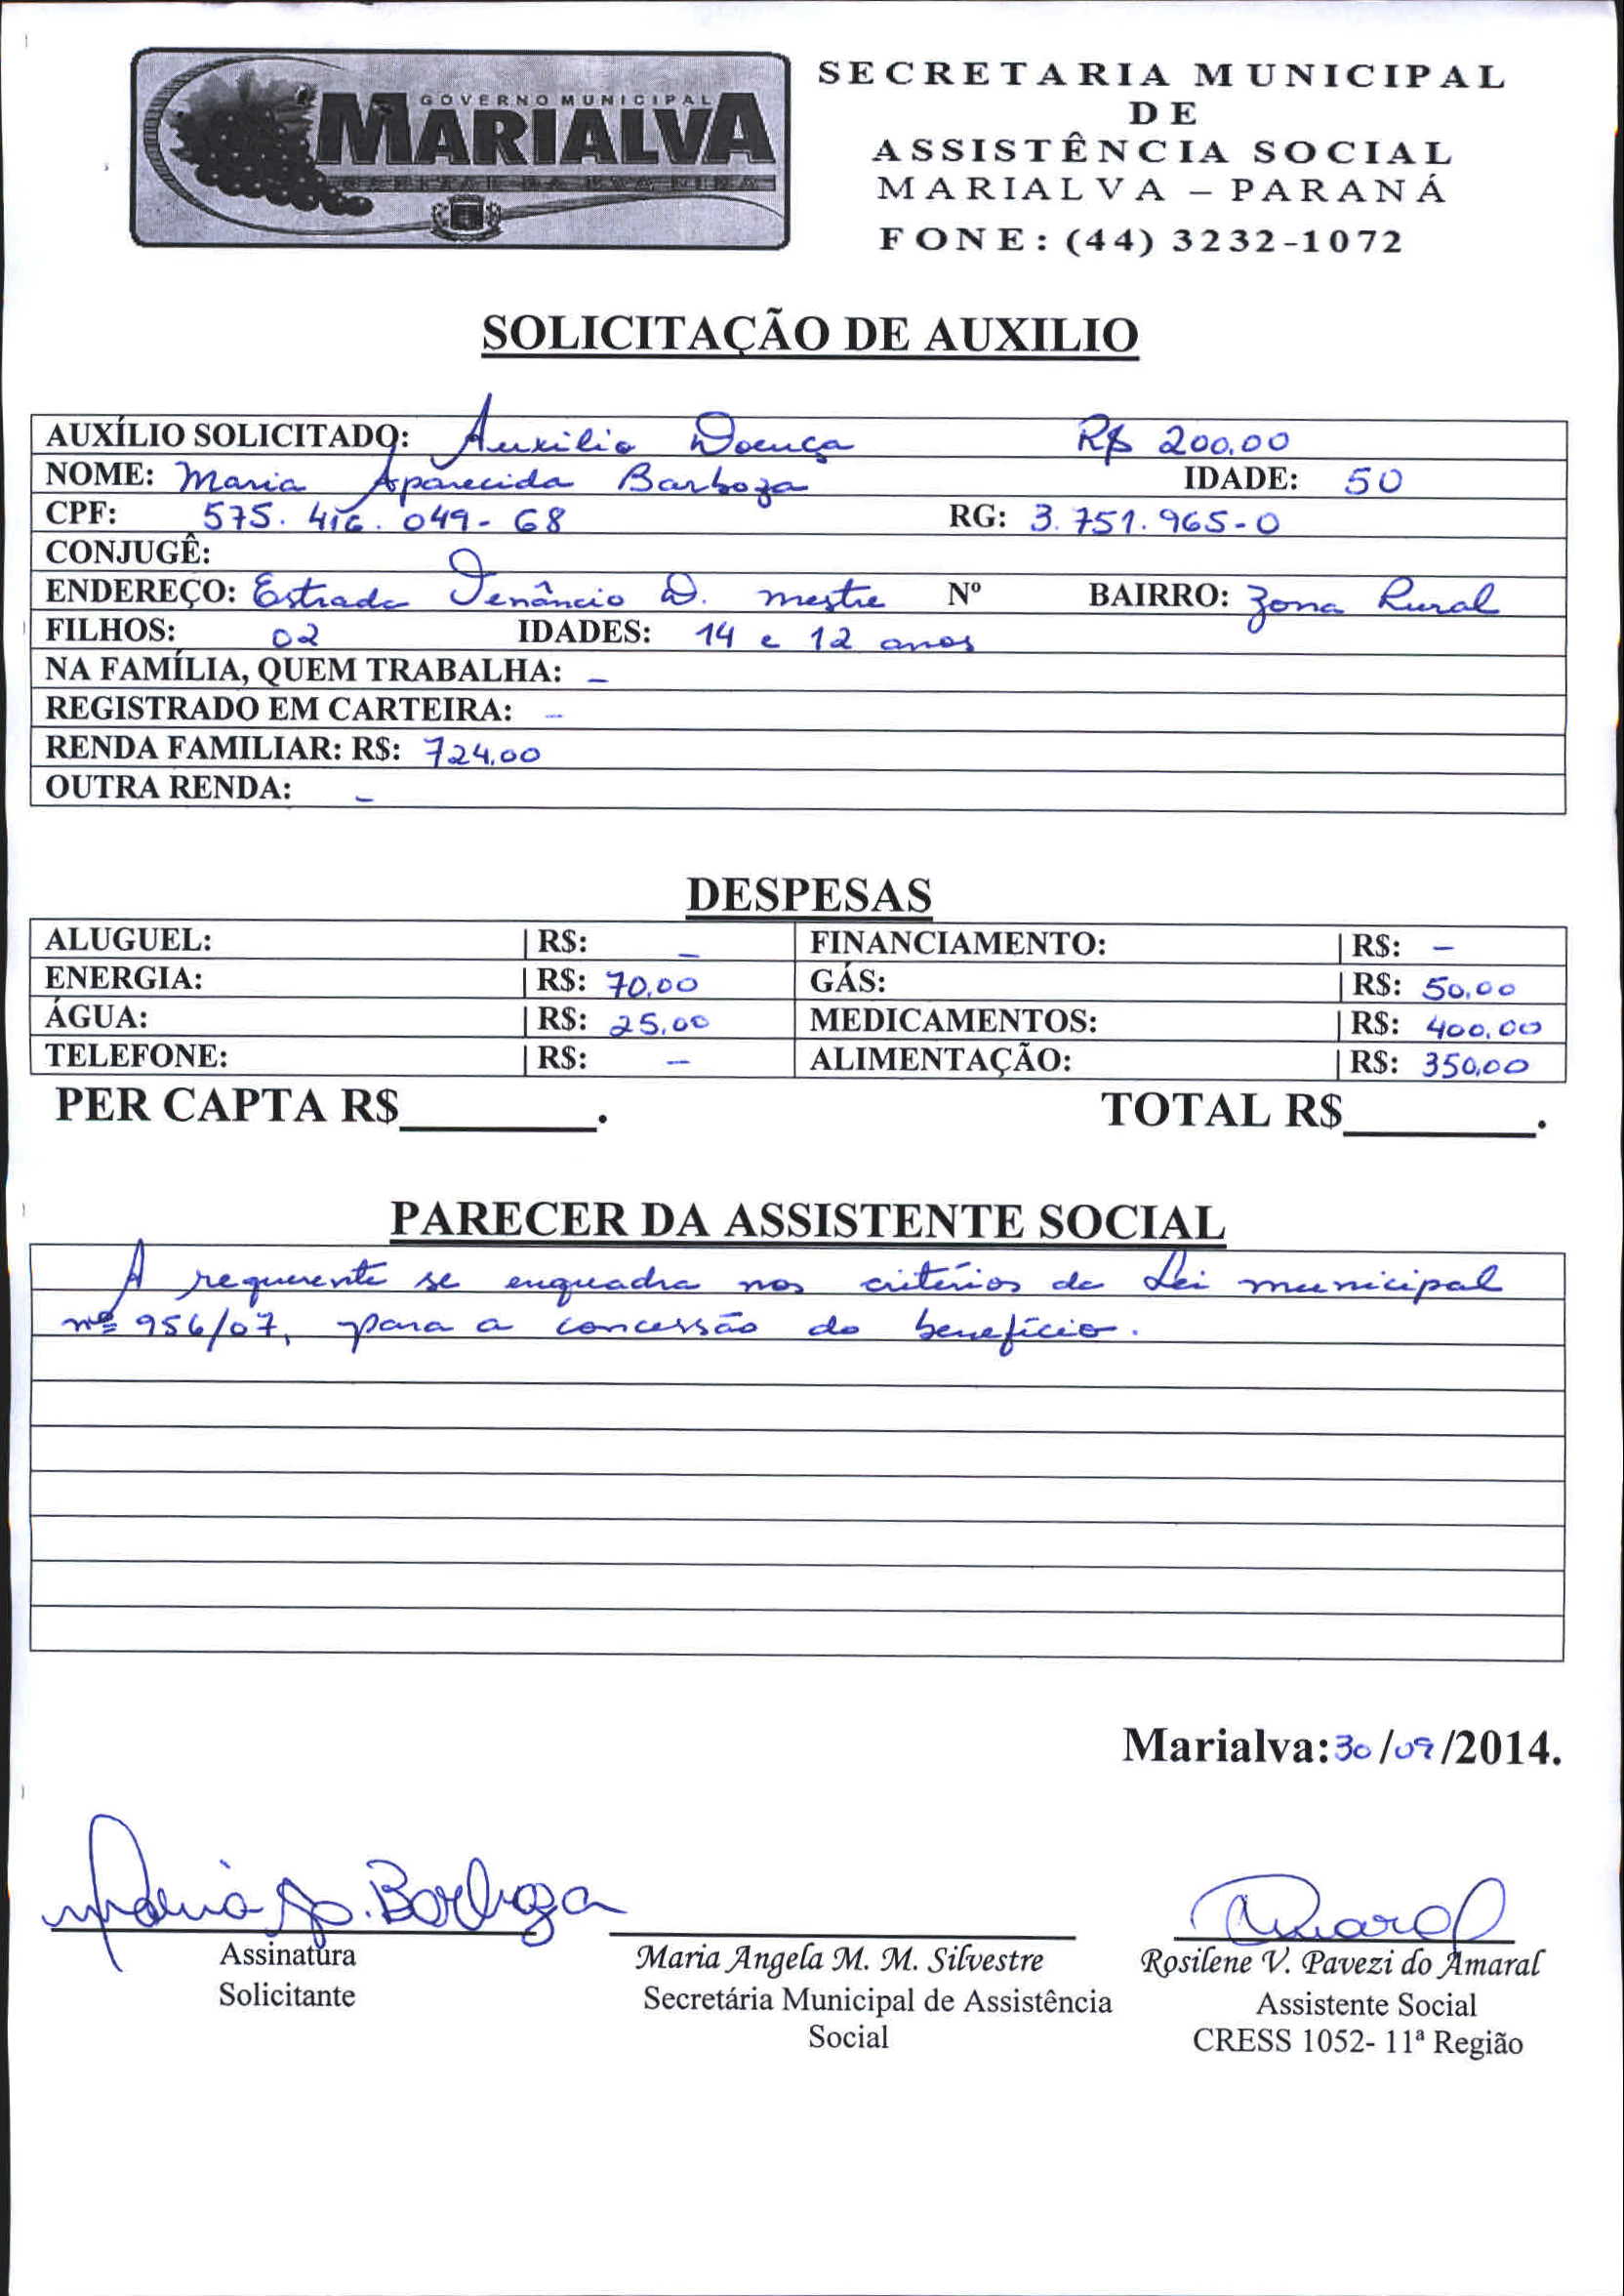 GOVERNO MUNICIPAL
MARIALVA
SECRETARIA MUNICIPAL
DE
ASSISTÊNCIA SOCIAL
MARIALVA – PARANÁ
FONE: (44) 3232-1072
SOLICITAÇÃO DE AUXILIO
AUXÍLIO SOLICITADO: Auxílio Doença R$ 200,00
NOME: Maria Aparecida Barboza IDADE: 50
CPF: 575.416.049-68 RG: 3.751.965-0
CONJUGÊ:
ENDEREÇO: Estrada Venâncio D. mestre Nº BAIRRO: Zona Rural
FILHOS: 02 IDADES: 14 e 12 anos
NA FAMÍLIA, QUEM TRABALHA: –
REGISTRADO EM CARTEIRA: –
RENDA FAMILIAR: R$: 724,00
OUTRA RENDA: –
DESPESAS
ALUGUEL: | R$: – FINANCIAMENTO: | R$: –
ENERGIA: | R$: 70,00 GÁS: | R$: 50,00
ÁGUA: | R$: 25,00 MEDICAMENTOS: | R$: 400,00
TELEFONE: | R$: – ALIMENTAÇÃO: | R$: 350,00
PER CAPTA R$________. TOTAL R$________.
PARECER DA ASSISTENTE SOCIAL
A requerente se enquadra nos critérios da Lei municipal
nº 956/07, para a concessão do benefício.
Marialva: 30/09/2014.
Maria Ap. Barboza
Amaral
Assinatura
Solicitante
Maria Angela M. M. Silvestre
Secretária Municipal de Assistência
Social
Rosilene V. Pavezi do Amaral
Assistente Social
CRESS 1052- 11ª Região